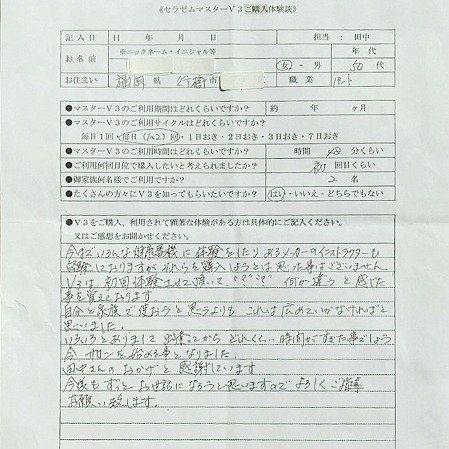 《セラゼムマスターV3ご購入体験談》
記入日 H 年 月 日 担当：田中
お名前 ※ニックネーム・イニシャル等 年代
女・男 50代
お住まい 福岡 県 行橋 市 職業 パート
●マスターV3のご利用期間はどれくらいですか？ 約 年 ヶ月
●マスターV3のご利用サイクルはどれくらいですか？
毎日1回・毎日(1〜2)回・1日おき・2日おき・3日おき・7日おき
●マスターV3のご利用時間はどれくらいですか？ 時間 40 分くらい
●ご利用何回目位で購入したいと考えられましたか？ 初 回目くらい
●御家族何名様でご利用ですか？ 2 名
●たくさんの方々にV3を知ってもらいたいですか？ はい・いいえ・どちらでもない
●V3をご購入、利用されて顕著な体験がある方は具体的にご記入ください。
又はご感想をお聞かせください。
今までいろんな健康器機に体験をしたりあるメーカーのインストラクターも
経験しておりますがそれらを購入しようとは思った事はございません
V3は初回体験させて頂いて、何か違うと感じた
事を覚えております
自分と家族で使おうと思うよりも これは広めていかなければと
思いました。
いろいろとありまして 出逢ってから どれくらい時間がすぎた事でしょう
今 サロンを始める事となりました
田中さんのおかげと 感謝しています
今後も ずっと お世話になろうと思いますので よろしくご指導
お願い致します。